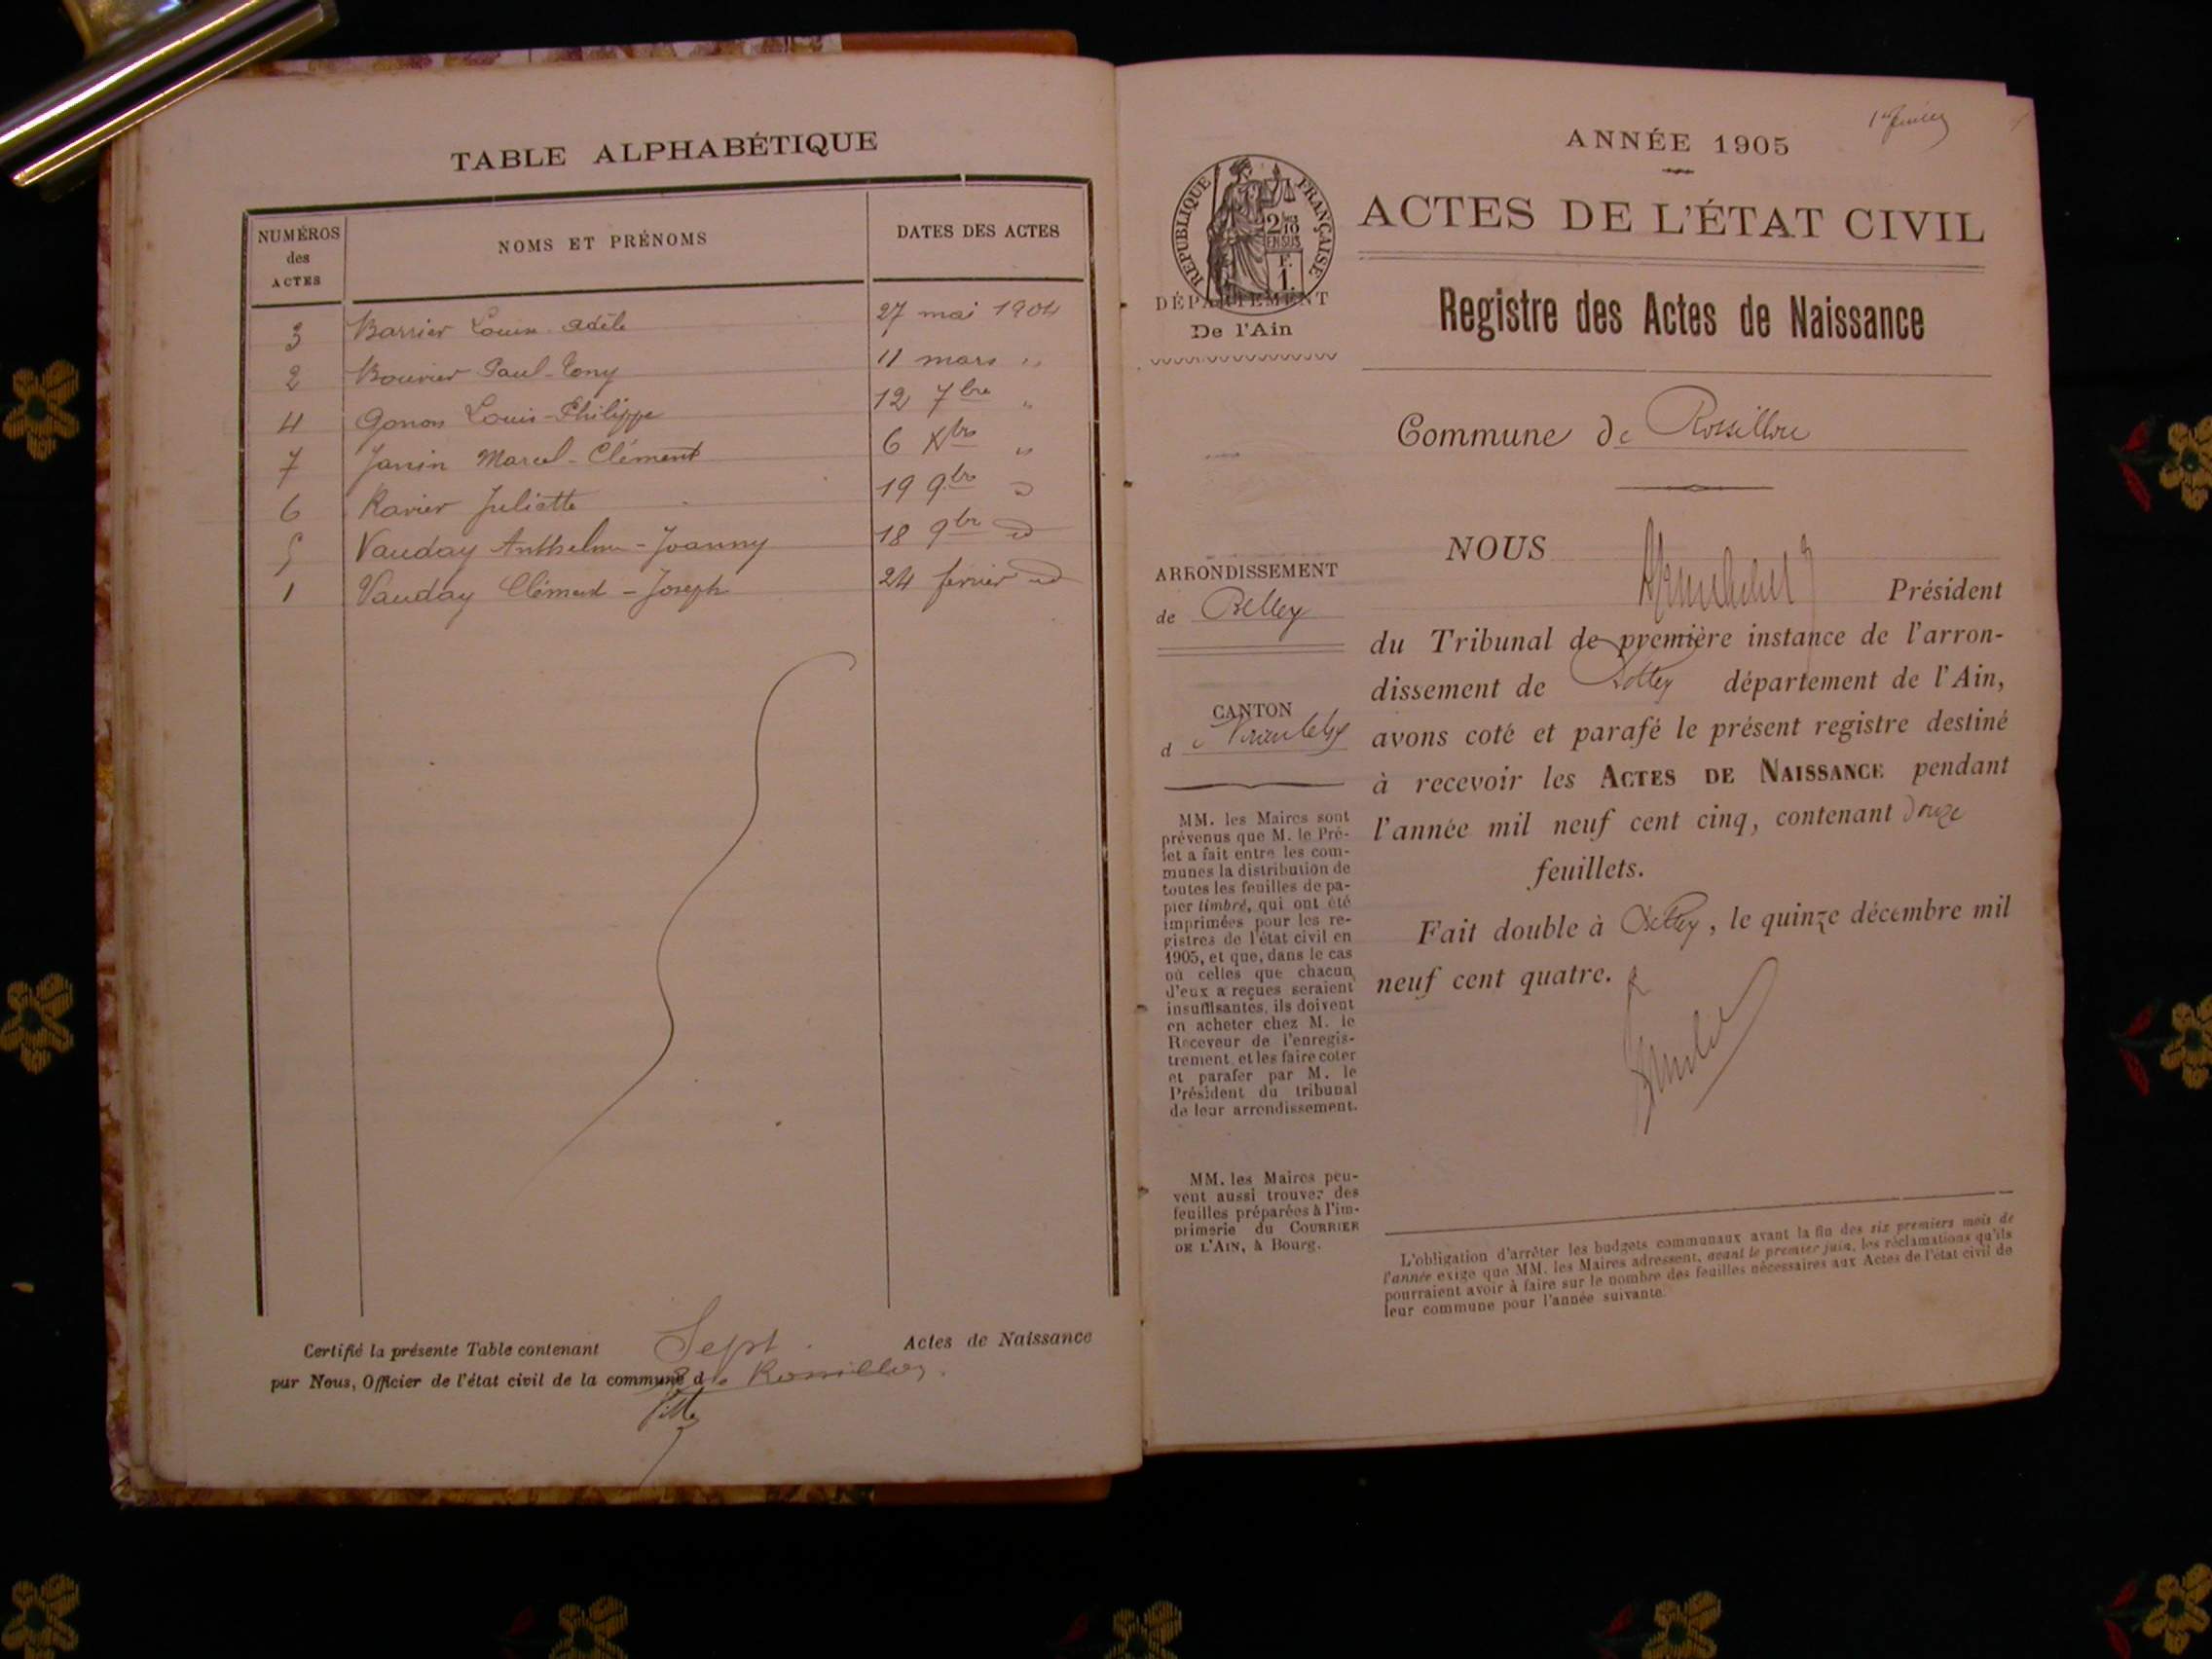 TABLE ALPHABÉTIQUE
NUMÉROS
des
ACTES
NOMS ET PRÉNOMS
DATES DES ACTES
3 Barrier Louise Adèle 27 mai 1904
2 Bouvier Paul-Tony 11 mars "
4 Gonon Louis-Philippe 12 7bre "
7 Janin Marcel-Clément 6 Xbre "
6 Ravier Juliette 19 9bre
5 Vauday Anthelme-Joanny 18 9bre
1 Vauday Clément-Joseph 24 février
Certifié la présente Table contenant Sept Actes de Naissance
par Nous, Officier de l'état civil de la commune de Rossillon.
1er février
ANNÉE 1905
ACTES DE L'ÉTAT CIVIL
RÉPUBLIQUE FRANÇAISE
2/10
EN SUS
F.
1.
DÉPARTEMENT
De l'Ain
Registre des Actes de Naissance
Commune de Rossillon
ARRONDISSEMENT
de Belley
CANTON
d
MM. les Maires sont
prévenus que M. le Pré-
fet a fait entre les com-
munes la distribution de
toutes les feuilles de pa-
pier timbré, qui ont été
imprimées pour les re-
gistres de l'état civil en
1905, et que, dans le cas
où celles que chacun
d'eux a reçues seraient
insuffisantes, ils doivent
en acheter chez M. le
Receveur de l'enregis-
trement et les faire coter
et parafer par M. le
Président du tribunal
de leur arrondissement.
MM. les Maires peu-
vent aussi trouver des
feuilles préparées à l'im-
primerie du COURRIER
DE L'AIN, à Bourg.
NOUS
Président
du Tribunal de première instance de l'arron-
dissement de Belley département de l'Ain,
avons coté et parafé le présent registre destiné
à recevoir les ACTES DE NAISSANCE pendant
l'année mil neuf cent cinq, contenant douze
feuillets.
Fait double à Belley, le quinze décembre mil
neuf cent quatre.
L'obligation d'arrêter les budgets communaux avant la fin des six premiers mois de
l'année exige que MM. les Maires adressent, avant le premier juin, les réclamations qu'ils
pourraient avoir à faire sur le nombre des feuilles nécessaires aux Actes de l'état civil de
leur commune pour l'année suivante.